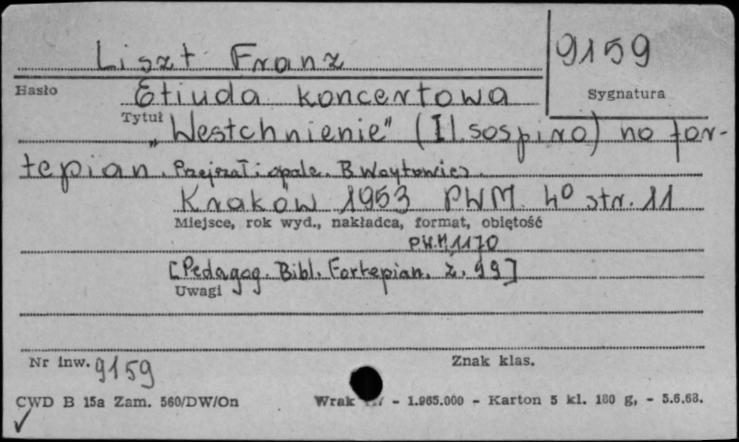 Liszt Franz
9159
Hasło
Etiuda koncertowa
Sygnatura
Tytuł
"Westchnienie" (Il sospiro) na for-
tepian. Przejrzał i opalc. B. Woytowicz.
Kraków 1953 PWM 4° str. 11
Miejsce, rok wyd., nakładca, format, objętość
PWM 1170
[Pedagog. Bibl. Fortepian. z. 99]
Uwagi
Nr inw. 9159
Znak klas.
CWD B 15a Zam. 560/DW/On
Wrak - 1.965.000 - Karton 5 kl. 180 g, - 5.6.68.